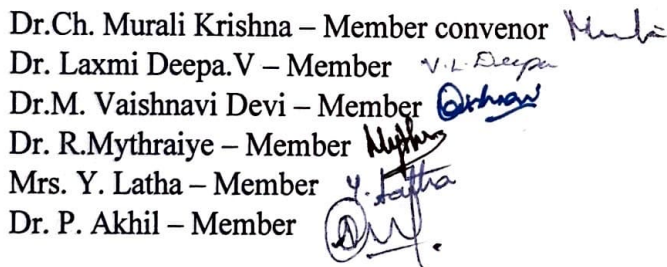 Dr.Ch. Murali Krishna – Member convenor
Dr. Laxmi Deepa.V – Member V.L.Deepa
Dr.M. Vaishnavi Devi – Member
Dr. R.Mythraiye – Member
Mrs. Y. Latha – Member Y. Latha
Dr. P. Akhil – Member